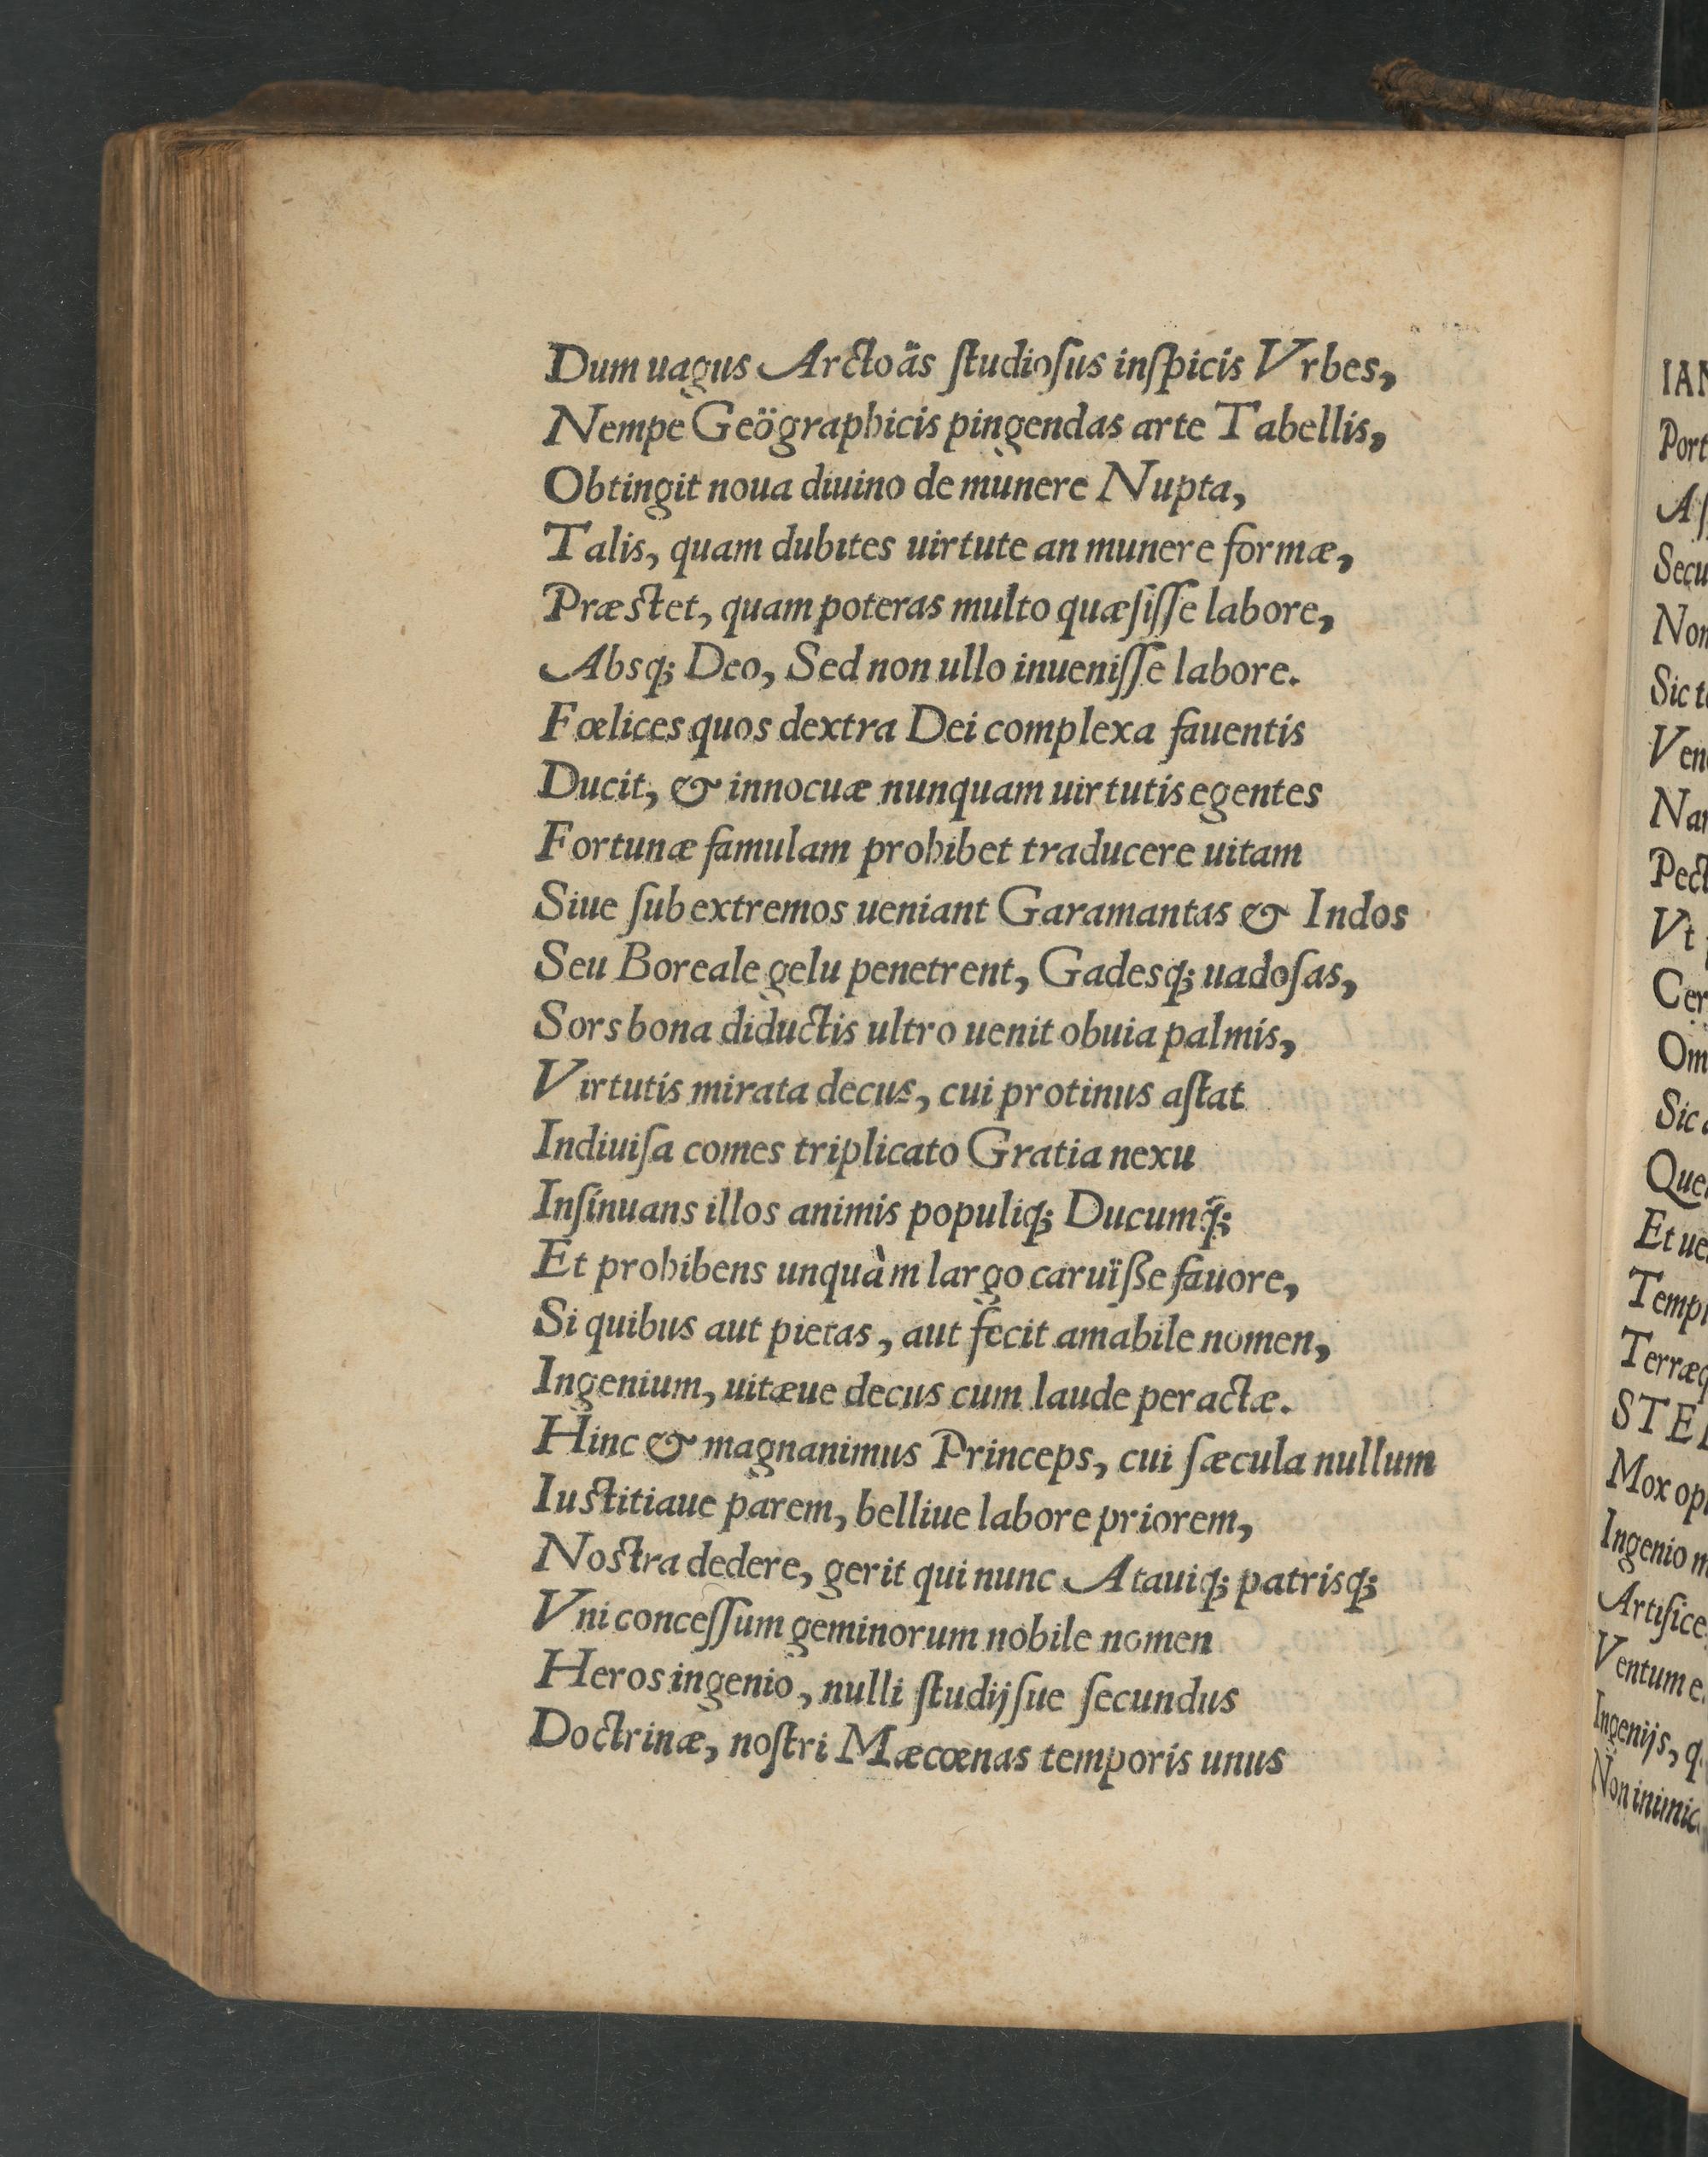 Dum uagus Arctoäs ſtudioſus inſpicis Vrbes,
Nempe Geögraphicis pingendas arte Tabellis,
Obtingit noua diuino de munere Nupta,
Talis, quam dubites uirtute an munere formæ,
Præstet, quam poteras multo quæſiſſe labore,
Absq; Deo, Sed non ullo inueniſſe labore.
Fœlices quos dextra Dei complexa fauentis
Ducit, & innocuæ nunquam uirtutis egentes
Fortunæ famulam prohibet traducere uitam
Siue ſub extremos ueniant Garamantas & Indos
Seu Boreale gelu penetrent, Gadesq; uadoſas,
Sors bona diductis ultro uenit obuia palmis,
Virtutis mirata decus, cui protinus aſtat
Indiuiſa comes triplicato Gratia nexu
Inſinuans illos animis populiq; Ducumq́;
Et prohibens unquàm largo caruïße fauore,
Si quibus aut pietas, aut fecit amabile nomen,
Ingenium, uitæue decus cum laude peractæ.
Hinc & magnanimus Princeps, cui ſæcula nullum
Iustitiaue parem, belliue labore priorem,
Nostra dedere, gerit qui nunc Atauiq; patrisq;
Vni conceſſum geminorum nobile nomen
Heros ingenio, nulli ſtudijſue ſecundus
Doctrinæ, noſtri Mæcœnas temporis unus
IAN
Port
Secu
Non
Sic t
Ven
Nar
Pect
Vt
Cer
Om
Sic
Que
Et ue
Temp
Terræq
STE
Mox op
Ingenio
Artifice
Ventum e
Ingenijs, q
Non inimic